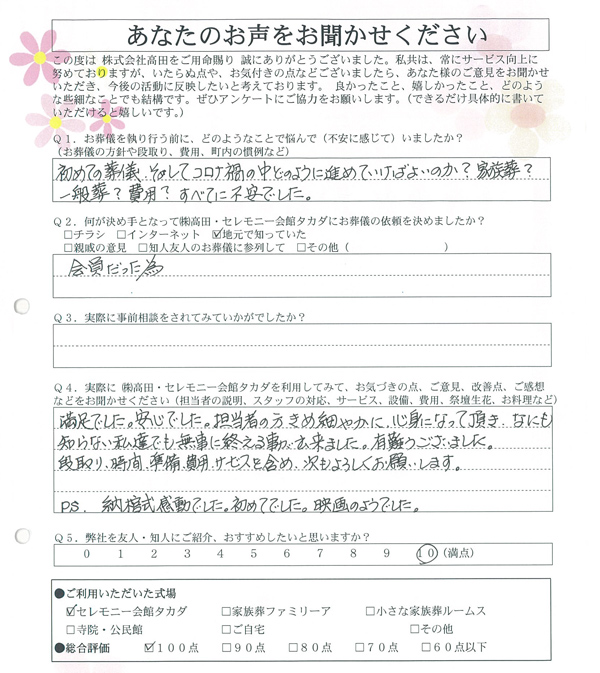 あなたのお声をお聞かせください
この度は 株式会社高田をご用命賜り 誠にありがとうございました。私共は、常にサービス向上に
努めておりますが、いたらぬ点や、お気付きの点などございましたら、あなた様のご意見をお聞かせ
いただき、今後の活動に反映したいと考えております。 良かったこと、嬉しかったこと、どのよう
な些細なことでも結構です。ぜひアンケートにご協力をお願いします。（できるだけ具体的に書いて
いただけると嬉しいです。）
Ｑ１．お葬儀を執り行う前に、どのようなことで悩んで（不安に感じて）いましたか？
（お葬儀の方針や段取り、費用、町内の慣例など）
初めての葬儀、そしてコロナ禍の中どのように進めていけばよいのか？家族葬？
一般葬？費用？すべてに不安でした。
Ｑ２．何が決め手となって㈱高田・セレモニー会館タカダにお葬儀の依頼を決めましたか？
□チラシ □インターネット ☑地元で知っていた
□親戚の意見 □知人友人のお葬儀に参列して □その他（ ）
会員だった為
Ｑ３．実際に事前相談をされてみていかがでしたか？
Ｑ４．実際に ㈱高田・セレモニー会館タカダを利用してみて、お気づきの点、ご意見、改善点、ご感想
などをお聞かせください（担当者の説明、スタッフの対応、サービス、設備、費用、祭壇生花、お料理など）
満足でした。安心でした。担当者の方きめ細やかに、心身になって頂き、なにも
知らない私達でも無事に終える事が出来ました。有難うございました。
段取り、時間、準備、費用、サービスを含め、次もよろしくお願いします。
P.S. 納棺式感動でした。初めてでした。映画のようでした。
Ｑ５．弊社を友人・知人にご紹介、おすすめしたいと思いますか？
０ １ ２ ３ ４ ５ ６ ７ ８ ９ １０（満点）
●ご利用いただいた式場
☑セレモニー会館タカダ □家族葬ファミリーア □小さな家族葬ルームス
□寺院・公民館 □ご自宅 □その他
●総合評価 ☑１００点 □９０点 □８０点 □７０点 □６０点以下